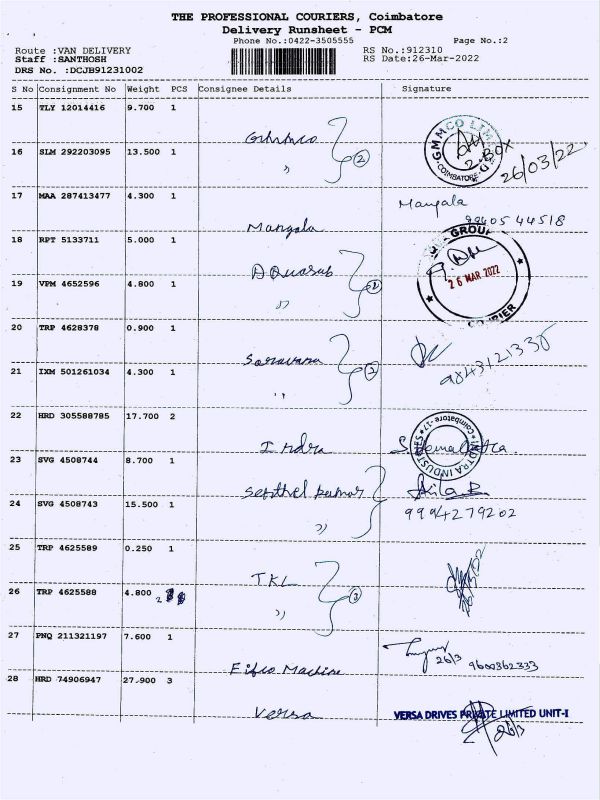 THE PROFESSIONAL COURIERS, Coimbatore
Delivery Runsheet - PCM
Phone No.:0422-3505555 Page No.:2
Route :VAN DELIVERY RS No.:912310
Staff :SANTHOSH RS Date:26-Mar-2022
DRS No. :DCJB91231002
S No Consignment No Weight PCS Consignee Details Signature
15 TLY 12014416 9.700 1
GMMCO LIMITED COIMBATORE
2 BOX
26/03/22
16 SLM 292203095 13.500 1
" 2
17 MAA 287413477 4.300 1
Mangala Mangala
99405 44518
18 RPT 5133711 5.000 1
Aquasub GROUP
26 MAR 2022
COURIER
19 VPM 4652596 4.800 1
" 2
20 TRP 4628378 0.900 1
Saravana
21 IXM 501261034 4.300 1
" 2
22 HRD 305588785 17.700 2
Indra
INDTRA INDUSTRIES Coimbatore-17
23 SVG 4508744 8.700 1
Senthil kumar
24 SVG 4508743 15.500 1
" 9994279202
25 TRP 4625589 0.250 1
TKL
26 TRP 4625588 4.800 2
"
27 PNQ 211321197 7.600 1
Machine 26/3 9600362333
28 HRD 74906947 27.900 3
Versa VERSA DRIVES PRIVATE LIMITED UNIT-I
26/3